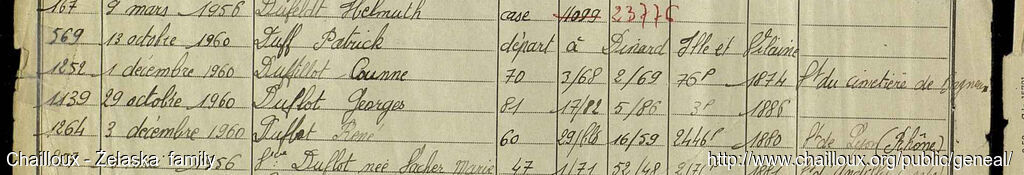 167 9 mars 1956 Dufeldt Helmuth case 1099 23776
569 13 octobre 1960 Duff Patrick départ à Dinard Ille et Vilaine
1252 1 décembre 1960 Duffillot 70 3/68 2/69 76P 1874 Pt du cimetière de
1139 29 octobre 1960 Duflot Georges 81 17/82 5/86 3P 1886
1264 3 décembre 1960 Duflot René 60 29/66 16/59 2446P 1880 Pt de Lyon (Rhône)
1956 Duflot née Marie 47 1/71 52/48
Chailloux - Želaska family
http://www.chailloux.org/public/geneal/